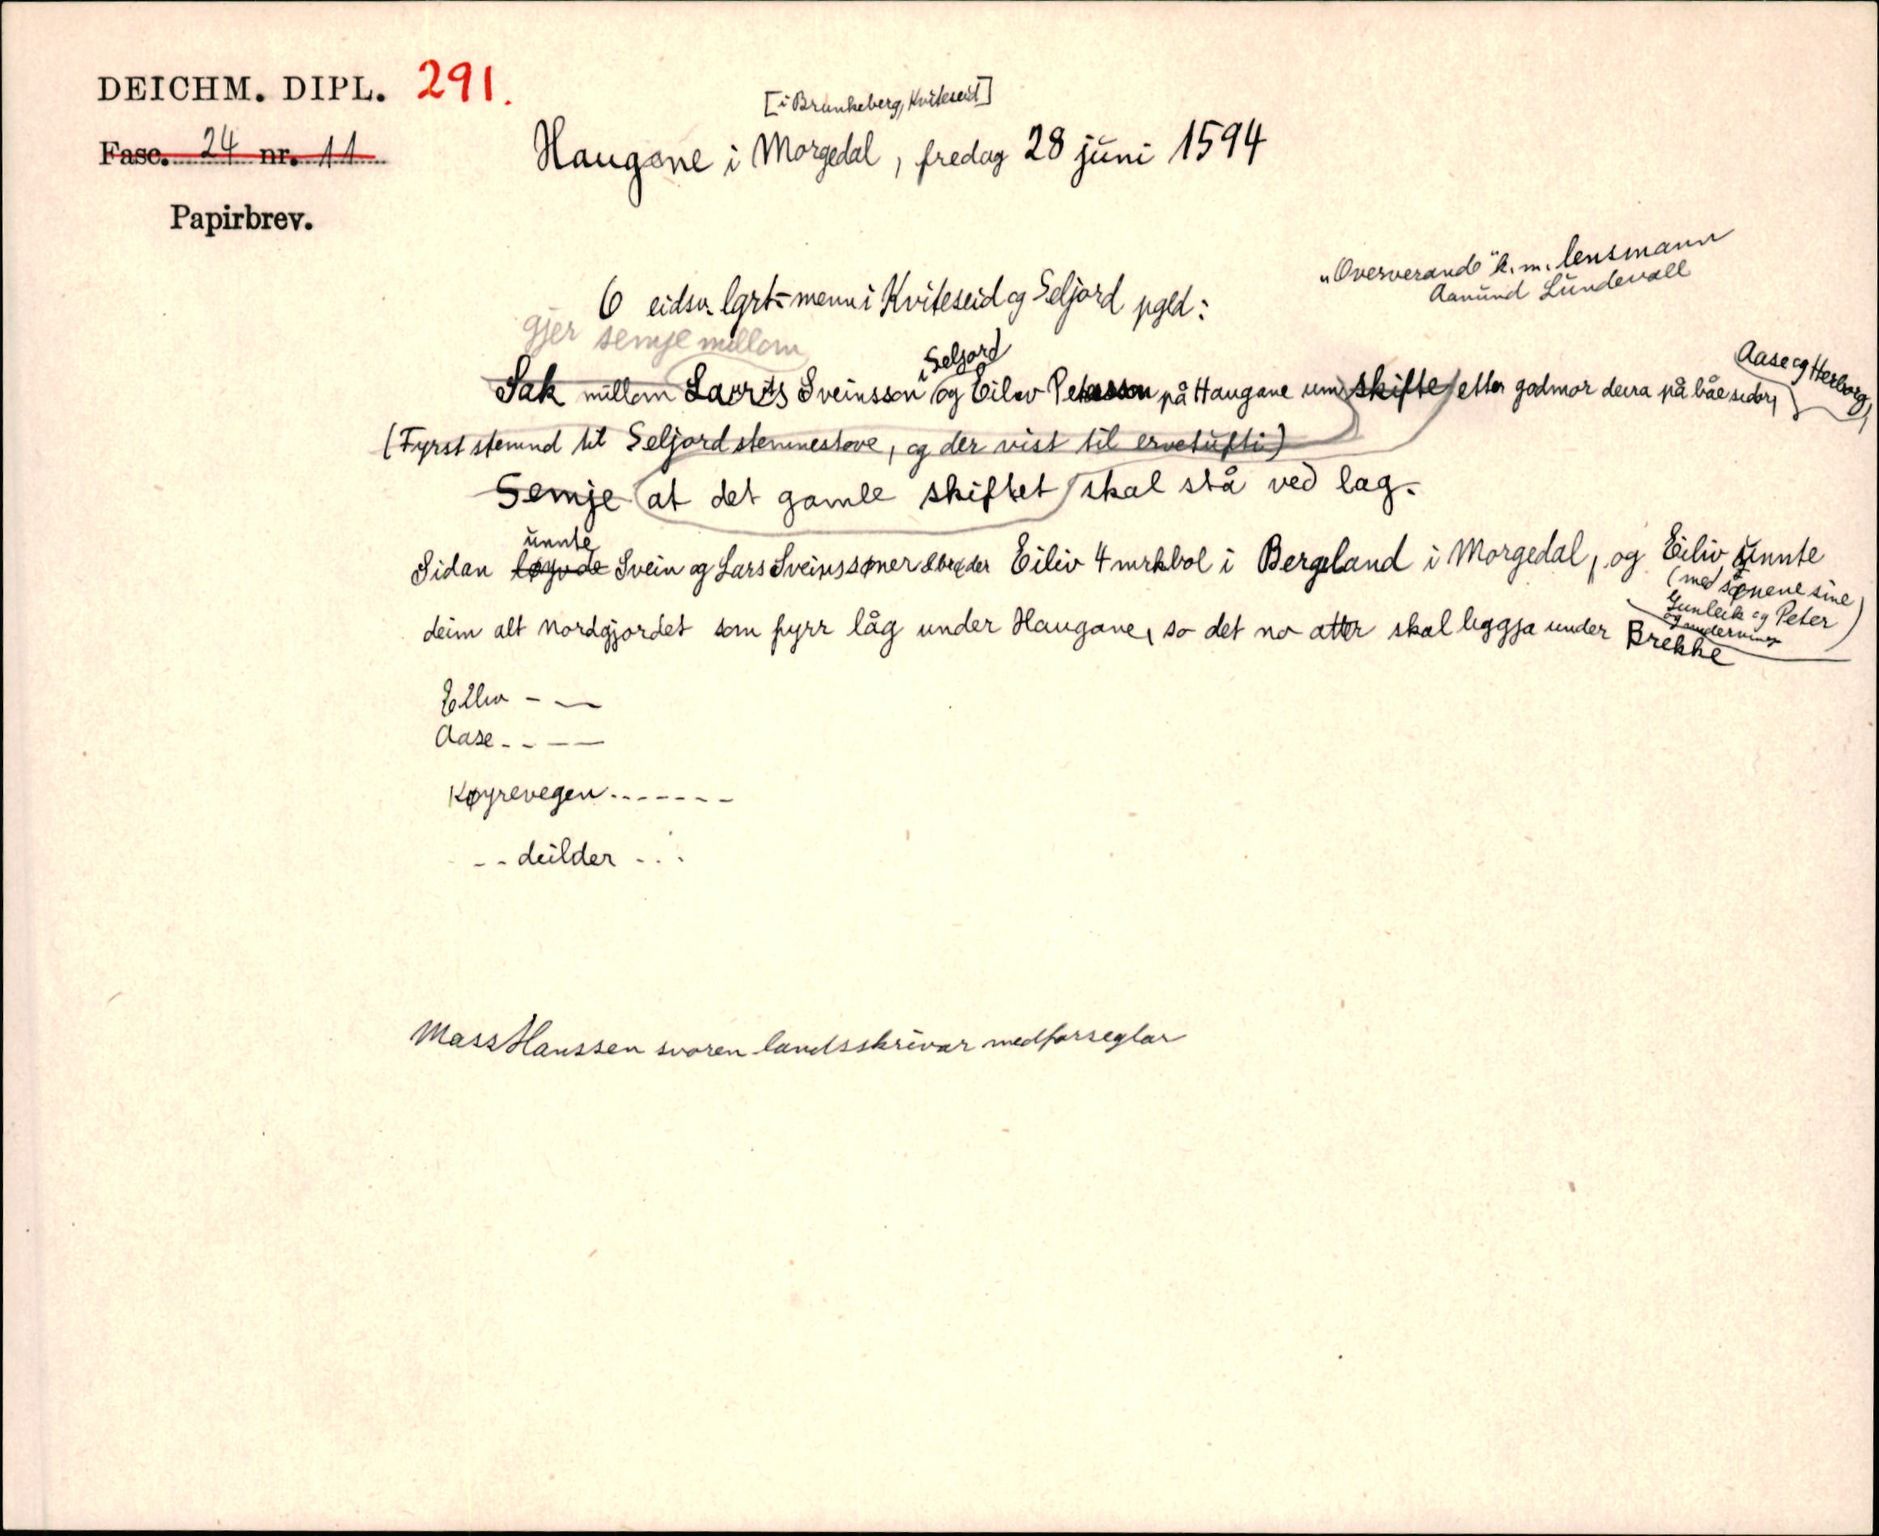 DEICHM. DIPL. 291.
Fasc. 24 nr. 11
Papirbrev.
[i Brunkeberg, Kviteseid]
Haugane i Morgedal, fredag 28 juni 1594
"Oververande" k.m. lensmann
Aamund Lundevall
6 eidsv. lgrt-menn i Kviteseid og Seljord pgld:
gjer semje millom
i Seljord
Aase og Herborg,
Sak millom Laurits Sveinsson og Eiliv Petersson på Haugane um skifte etter godmor deira på båe sidor,
(Fyrst stemnd til Seljord stemnestove, og der vist til ervetufti)
Semje at det gamle skiftet skal stå ved lag.
unnte
Sidan løyvde Svein og Lars Sveinssøner Eiliv 4 mrkbol i Bergeland i Morgedal, og Eiliv unnte
(med sønene sine
Gunleik og Peter)
deim alt Nordgjordet som fyrr låg under Haugane, so det no atter skal leggja under Brekke
Eiliv - —
Aase - - — —
Køyrevegen - - - - - - -
- - deilder - - -
Mass Hanssen svoren landsskrivar medforseglar